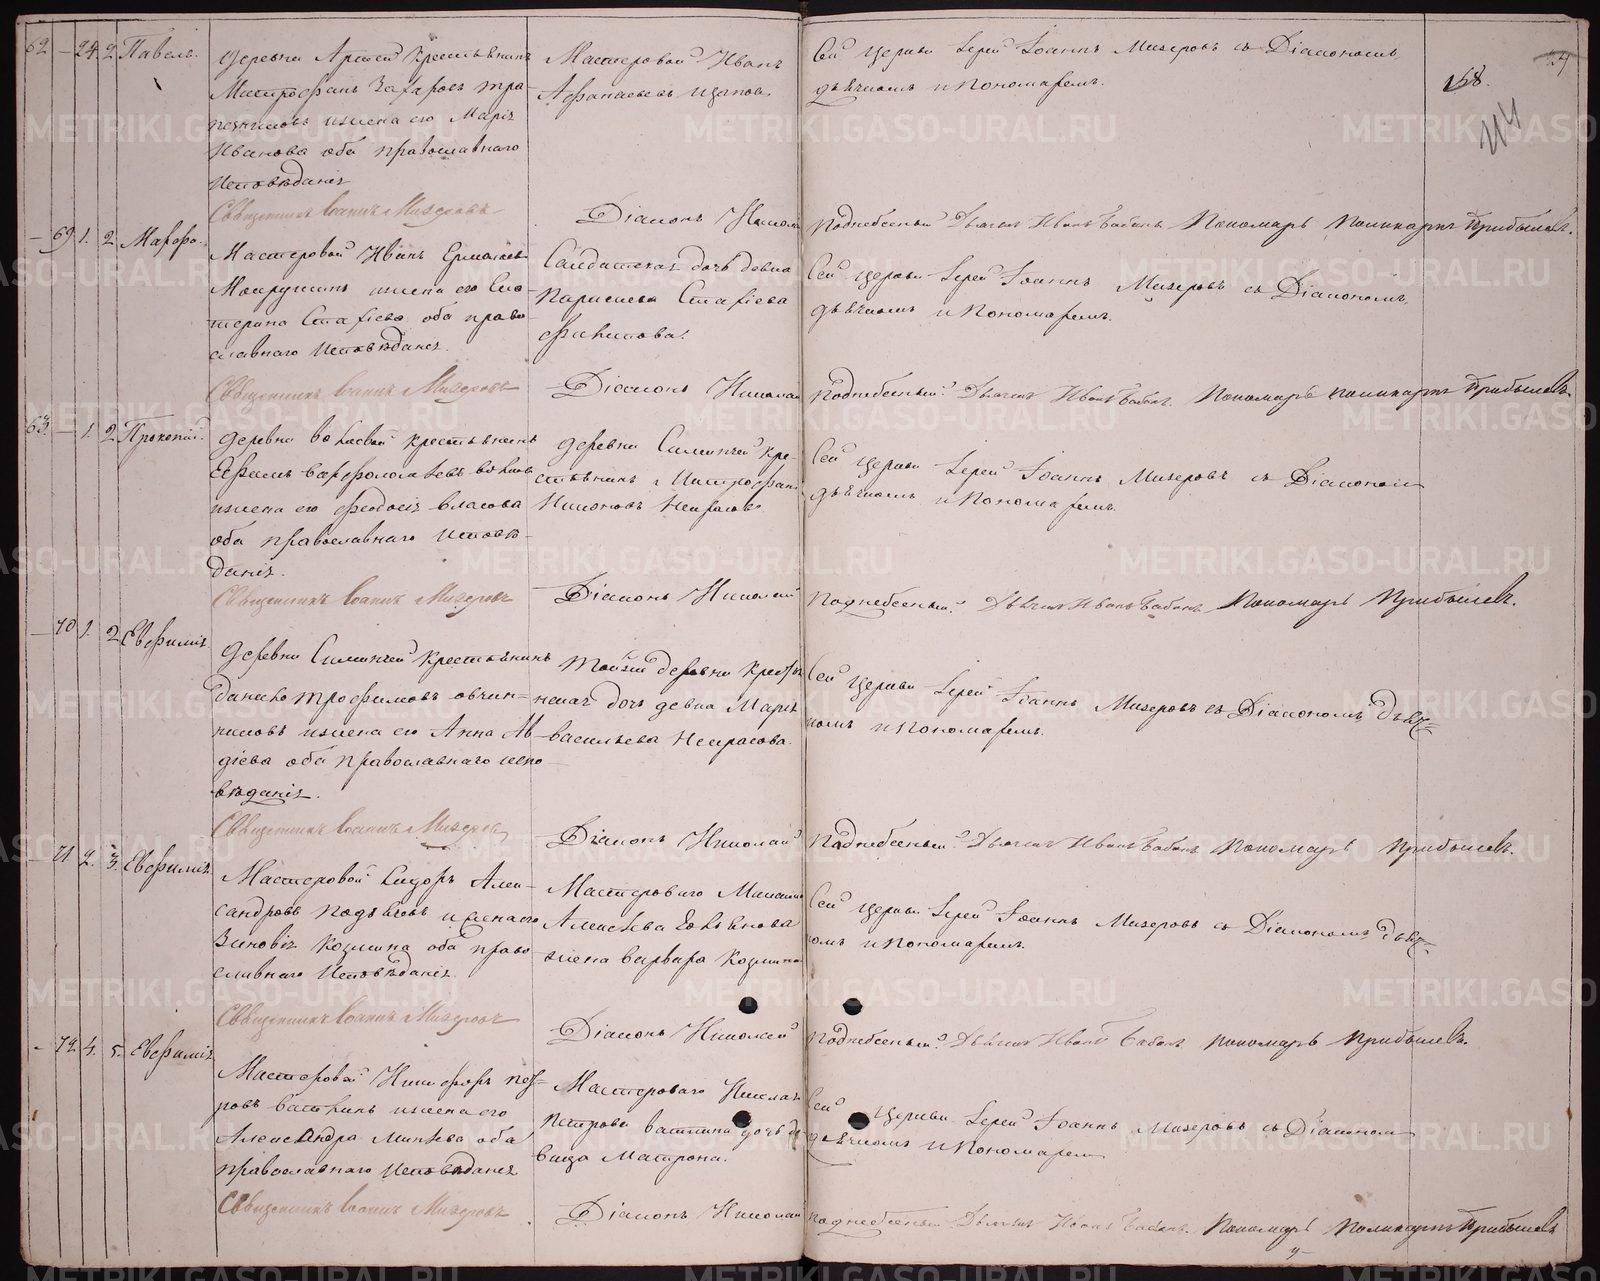 62 — 24. 2 Павелъ.
деревни Артей крестьянинъ
Митрофанъ Захаровъ тра-
пезниковъ и жена его Марiя
Иванова оба православнаго
исповѣданiя
Мастеровой Иванъ
Афанасьевъ
Сей церкви Iерей Iоаннъ Мизеровъ съ Дiакономъ,
дьячкомъ и Пономаремъ.
158.
Священникъ Iоаннъ Мизеровъ Дiаконъ Николай Поднебесный. Дьячекъ Иванъ Бабинъ. Пономарь Поликарпъ Прибылевъ.
— 69 1. 2. Марфа.
Мастеровой Иванъ Ермолаевъ
и жена его Ека-
терина Стахiева оба право-
славнаго исповѣданiя.
Солдатская дочь девка
Стахiева
Филипова.
Сей церкви Iерей Iоаннъ Мизеровъ съ Дiакономъ,
дьячкомъ и Пономаремъ.
Священникъ Iоаннъ Мизеровъ Дiаконъ Николай Поднебесный. Дьячекъ Иванъ Бабинъ. Пономарь Поликарпъ Прибылевъ.
63. — 1. 2. Прокопiй.
деревни крестьянинъ
Ефимъ Варфоломѣевъ
и жена его Феодосiя Власова
оба православнаго исповѣ-
данiя.
деревни Симинчей кре-
стьянинъ Митрофанъ
Никоновъ Некрасовъ
Сей церкви Iерей Iоаннъ Мизеровъ съ Дiакономъ
дьячкомъ и Пономаремъ.
Священникъ Iоаннъ Мизеровъ Дiаконъ Николай Поднебесный. Дьячекъ Иванъ Бабинъ. Пономарь Прибылевъ.
— 70 1. 2 Евфимiя.
деревни Симинчей крестьянинъ
Данило Трофимовъ Овчин-
никовъ и жена его Анна Ав-
дiева оба православнаго испо-
вѣданiя.
тойже деревни крестья
нская дочь девка Марiя
Васильева Некрасова.
Сей церкви Iерей Iоаннъ Мизеровъ съ Дiакономъ дьяч-
комъ и Пономаремъ.
Священникъ Iоаннъ Мизеровъ Дiаконъ Николай Поднебесный. Дьячекъ Иванъ Бабинъ Пономарь Прибылевъ.
— 71. 2. 3. Евфимiя.
Мастеровой Сидоръ Алек-
сандровъ и жена его
Зиновiя Козмина оба право
славнаго исповѣданiя.
Мастероваго
Алексѣева
жена Варвара Козмина
Сей церкви Iерей Iоаннъ Мизеровъ съ Дiакономъ дьяч-
комъ и Пономаремъ.
Священникъ Iоаннъ Мизеровъ Дiаконъ Николай Поднебесный. Дьячекъ Иванъ Бабинъ. Пономарь Прибылевъ.
— 72. 4. 5. Евфимiя.
Мастеровой Никифоръ Пет-
ровъ и жена его
Александра оба
православнаго исповѣданiя
Мастероваго
Петрова дочь де
вица Матрона.
Сей церкви Iерей Iоаннъ Мизеровъ съ Дiакономъ
дьячкомъ и Пономаремъ
Священникъ Iоаннъ Мизеровъ Дiаконъ Николай Поднебесный Дьячекъ Иванъ Бабинъ. Пономарь Поликарпъ Прибылевъ
METRIKI.GASO-URAL.RU